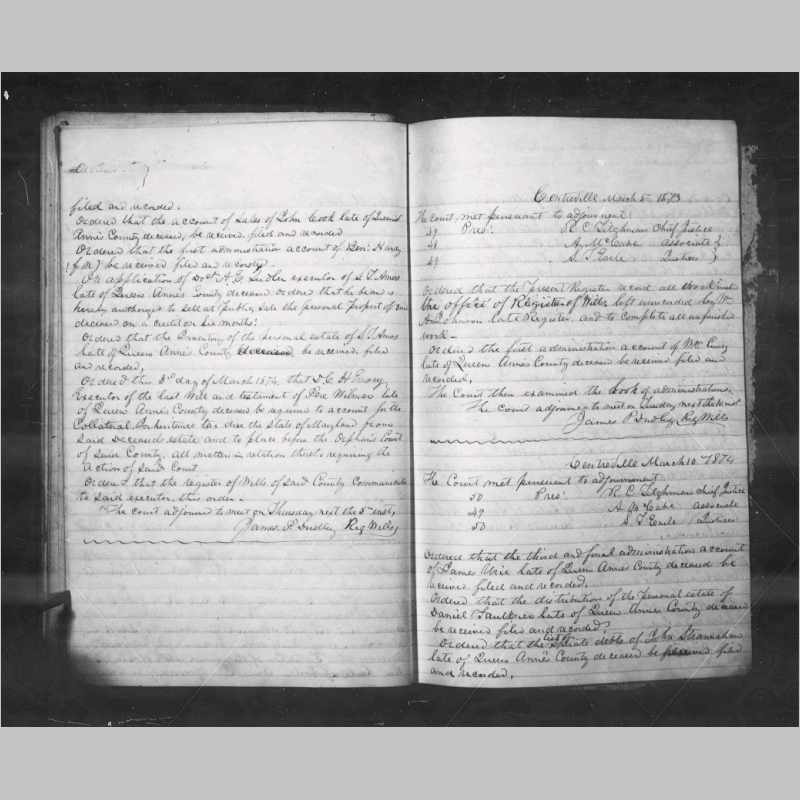 filed and recorded.
Ordered that the account of Sales of John Cook late of Queen
Anne's County deceased, be received filed and recorded
Ordered that the first administration account of Benj. Harvy
be received filed and recorded.
On application of executor of S T Amos
late of Queen Anne's County deceased ordered that he be and is
hereby authorized to sell at public sale the personal Property of said
deceased on a credit on six months.
Ordered that the Inventory of the personal estate of S. T. Amos
late of Queen Anne's County deceased be received, filed
and recorded,
Ordered this 3d day of March 1874, that H Emory
Executor of the last Will and testament of Wilmer late
of Queen Anne's County deceased be required to account for the
Collateral Inheritance tax due the State of Maryland from
said deceased's estate and to place before the Orphan's Court
of said County. All matters in relation thereto requiring the
Action of said Court
Ordered that the register of Wills of said County Communicate
to said executor this order.
The court adjourned to meet on Thursday next the 5th inst,
James P. Dudley Reg Wills
Centreville March 5th 1873
The court met pursuant to adjournment
49 Pres: R C Tilghman Chief Justice
48 A. McCabe Associate
49 S. T Earle Justices
Ordered that the Present Register record all
the office of Register of Wills left unrecorded by Wm
A Johnson late Register, and to complete all unfinished
work.
Ordered the first administration account of Wm
late of Queen Anne's County deceased be received filed and
recorded,
The Court then examined the book of administration,
The court adjourned to meet on Tuesday next the 10th inst
James P Dudley, Reg Wills
Centreville March 10th 1874
The Court met pursuant to adjournment
50 Pres: R C Tilghman Chief Justice
49 A. McCabe associate
50 S. T Earle Justices
Ordered that the third and final administration account
of James late of Queen Anne's County deceased be
received filed and recorded.
Ordered that the distribution of the personal estate of
Daniel Faulkner late of Queen Anne's County deceased
be received filed and recorded
Ordered that the list of debts of John
late of Queen Anne's County deceased be received filed
and recorded,